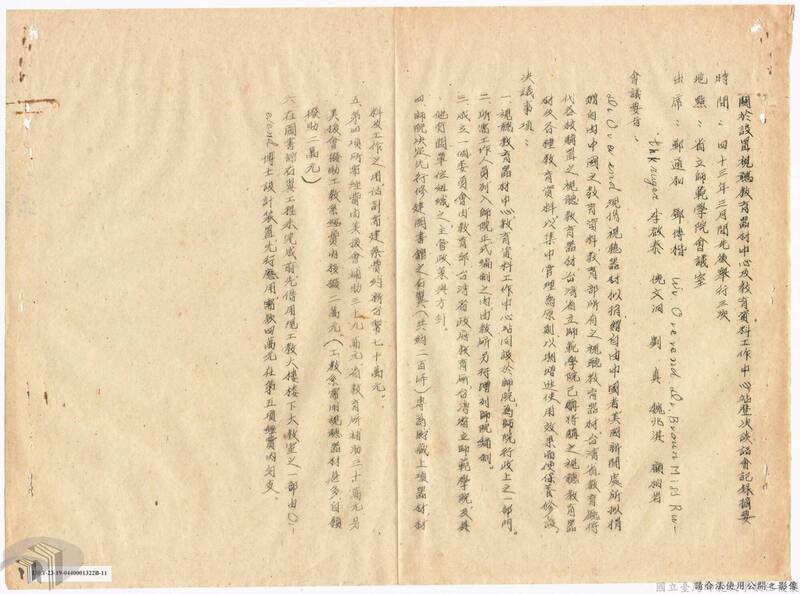 關於設置視聽教育器材中心及教育資料工作中心站歷次談話會記錄摘要
時間：四十三年三月間先後舉行三次
地點：省立師範學院會議室
出席：鄭通和 鄧傳楷 Dr. Brown Miss Ru-
李啟泰 倪文洞 劉真 魏兆淇 顧柏岩
會議要旨：
現將視聽器材擬捐贈自由中國者美國新聞處所擬捐
贈自由中國之教育資料教育部所有之視聽教育器材台灣省教育廳
代各校購置之視聽教育器材台灣省立師範學院已購將購之視聽教育器
材及各種教育資料以集中管理為原則以期增進使用效果而便保養修護
決議事項：
一、視聽教育器材中心教育資料工作中心站同設於師院為師院行政上之一部門。
二、所需工作人員列入師院正式編制之內由教所另行增列師院編制。
三、成立一個委員會由教育部台灣省政府教育所台灣省立師範學院及其
他有關單位組織之主管政策與方針。
四、師院決定先行修建圖書館之右翼（共約二百坪）專為貯藏上項器材材
料及工作之用估計有建築費約新台幣七十萬元。
五、第四項所需經費由美援會補助三十九萬元省教育所補助三十萬元另
美援會撥助工教系經費內核撥二萬元。（工教系需用視聽器材甚多自願
撥助二萬元）
六、在圖書館右翼工程未完成前先借用現工教大樓樓下大教室之一部由O-
rend博士設計裝置先行應用需款四萬元在第五項經費內勻支。
0440001322B-11
請合法使用公開之影像